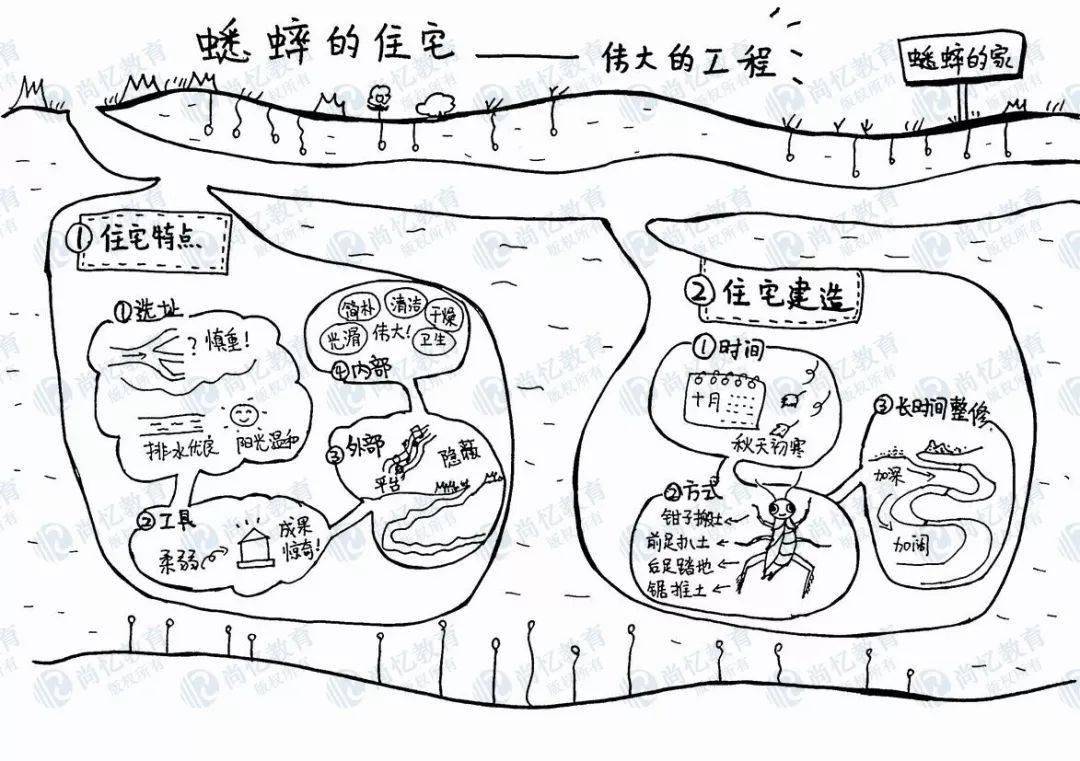 蟋蟀的住宅——伟大的工程
蟋蟀的家
①住宅特点
①选址
?慎重!
排水优良
阳光温和
②工具
柔弱
成果
惊奇!
③外部
隐蔽
平台
④内部
简朴
清洁
干燥
光滑
伟大!
卫生
②住宅建造
①时间
十月
秋天初寒
②方式
钳子搬土
前足扒土
后足踏地
锯推土
③长时间整修
加深
加阔
尚忆教育
版权所有